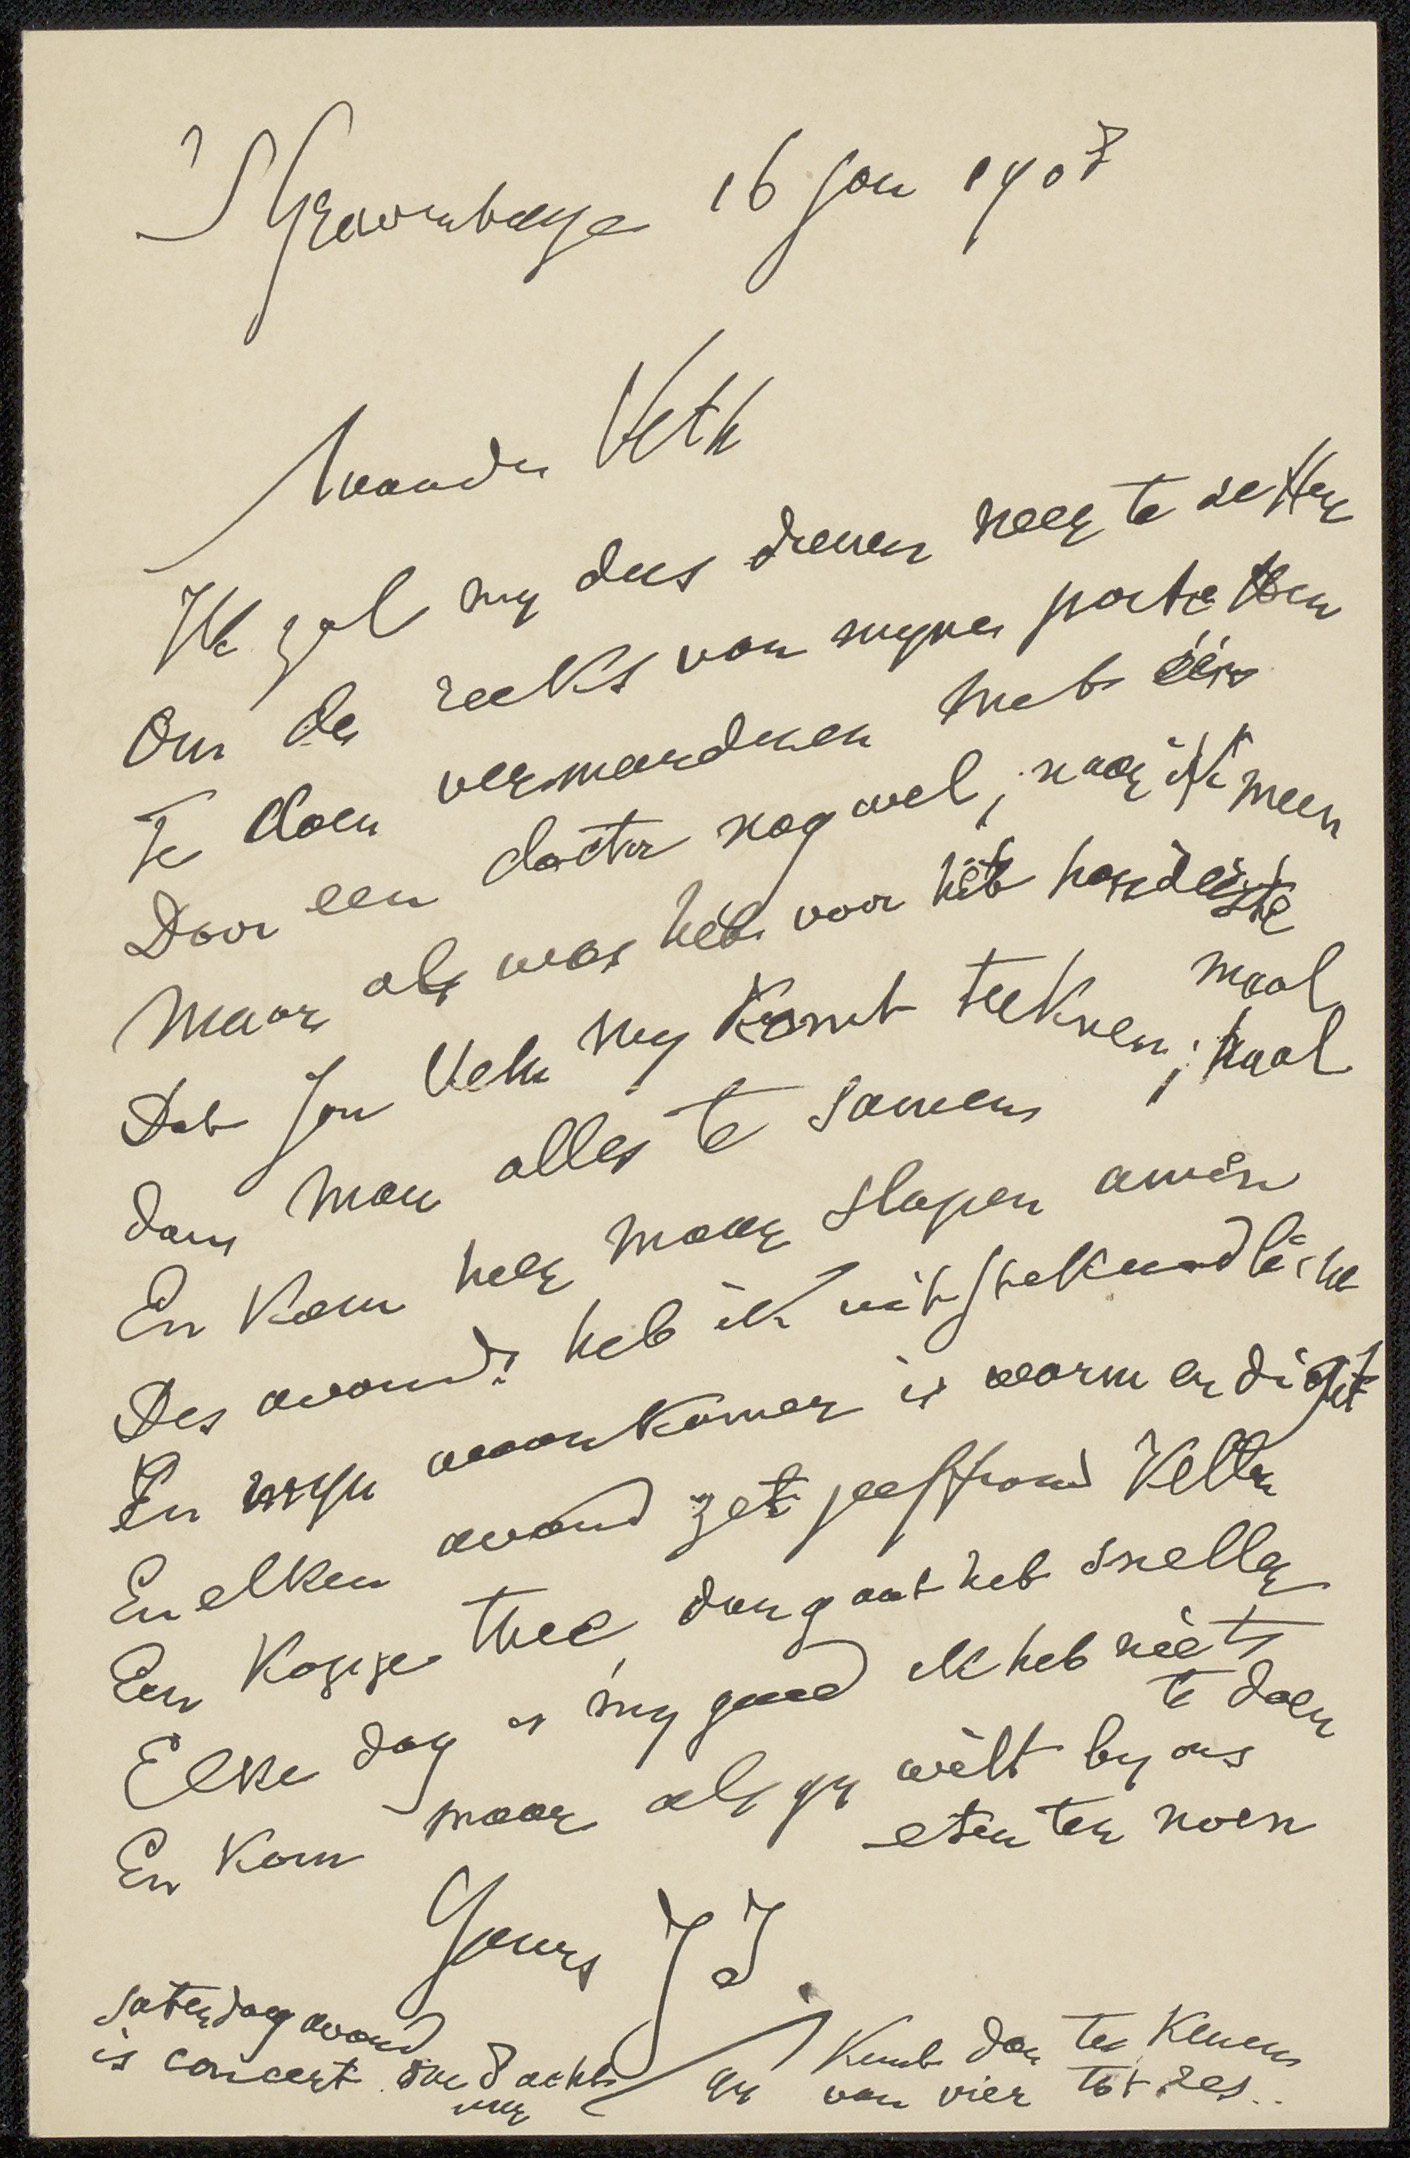 'S Gravenhage 16 Jan 1908
Waarde Veth
Ik zal my dus dienen neer te zetten
Om de reeks van myne portretten
Te doen vermeerderen met één
Door een doctor nog wel, naar ik meen
Maar als was het voor het honderdste
maal
Dat Jan Veth my komt teeknen; haal
dan man alles te samen
En kom hier maar slapen amen
Des avonds heb ik uitstekend licht
En myn woonkamer is warm en dicht
En elken avond zet jeffrouw Vetter
Een kopje thee dan gaat het sneller
Elke dag is my goed ik heb niets
te doen
En kom maar als gy wilt by ons
eten ten noen
Yours J J.
Saterdag avond
is concert om 8 acht
uur
gy kunt dan te kiezen
van vier tot zes..